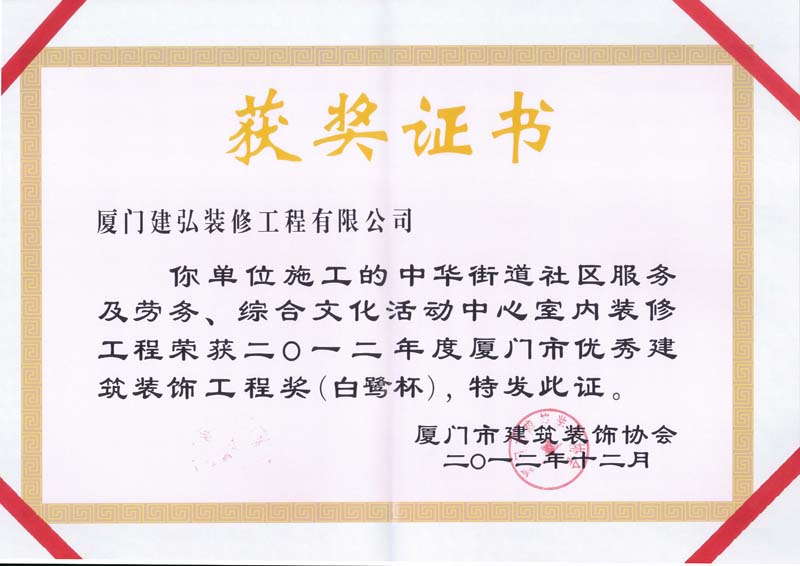 获奖证书
厦门建弘装修工程有限公司
你单位施工的中华街道社区服务
及劳务、综合文化活动中心室内装修
工程荣获二〇一二年度厦门市优秀建
筑装饰工程奖(白鹭杯),特发此证。
厦门市建筑装饰协会
二〇一二年十二月